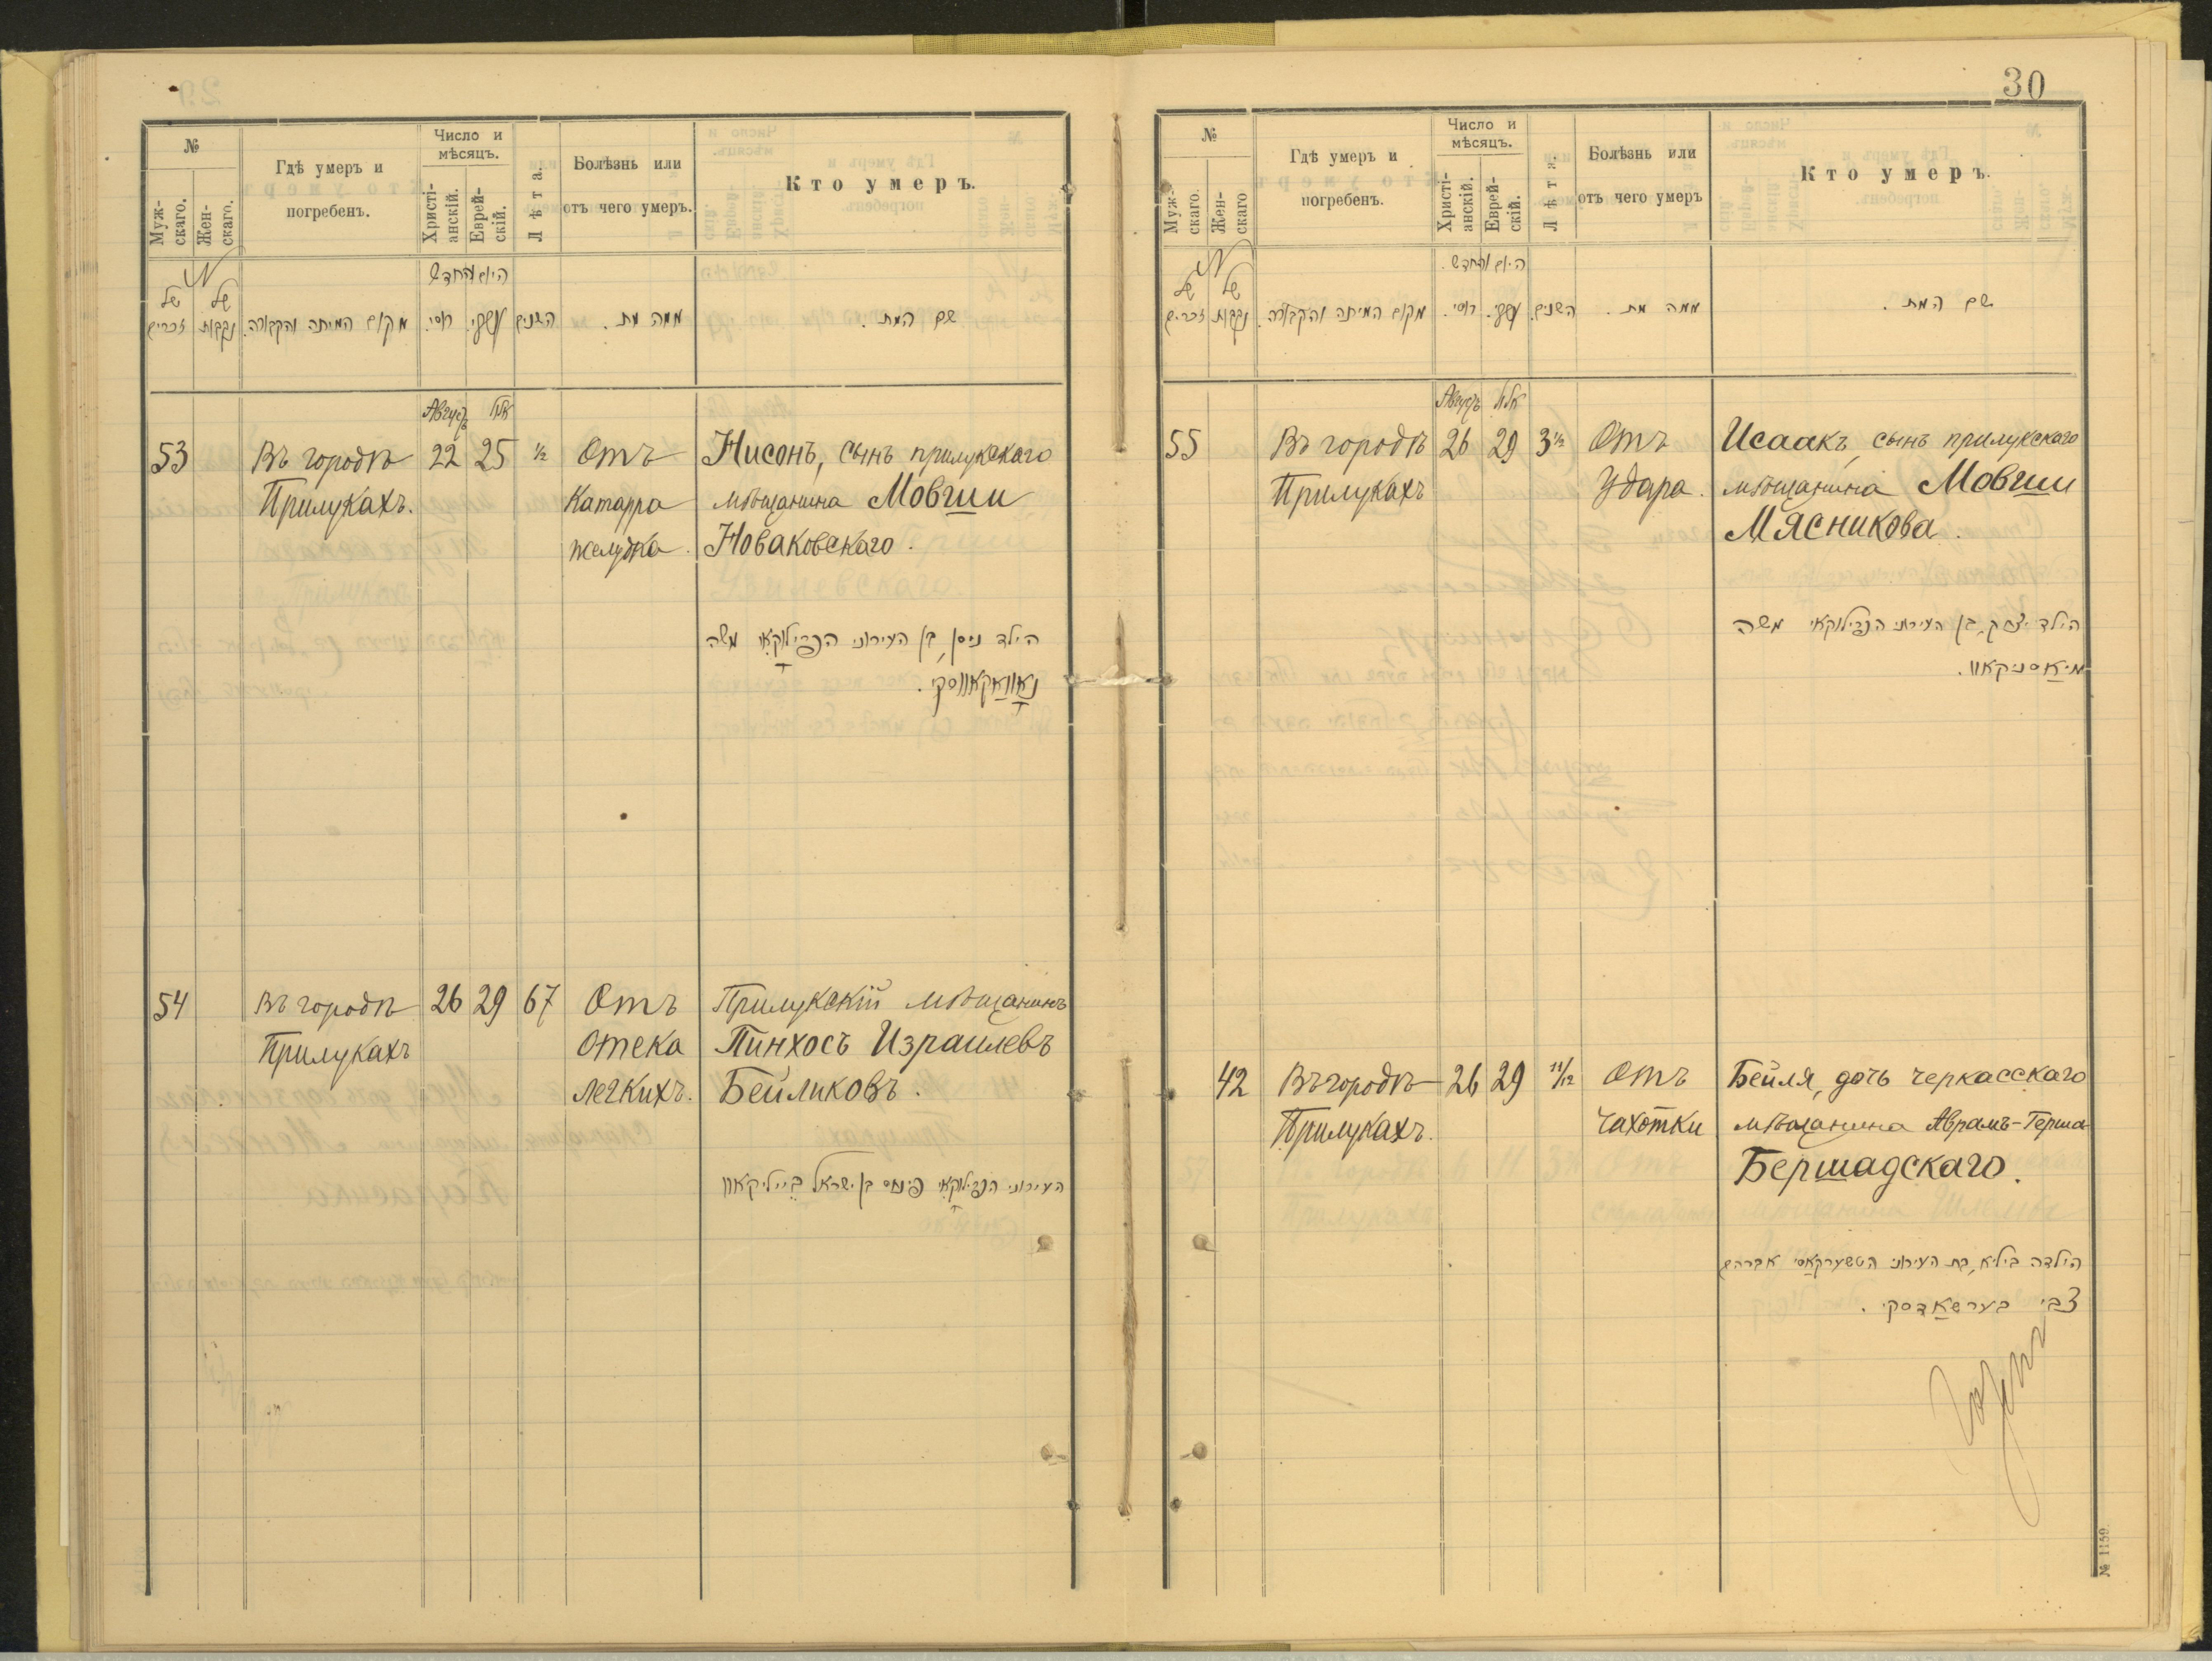 №
Муж-
скаго.
Жен-
скаго.
Гдѣ умеръ и
погребенъ.
Число и
мѣсяцъ.
Христі-
анскій.
Еврей-
скій.
Лѣта.
Болѣзнь или
отъ чего умеръ.
Кто умеръ.
של
זכרים
של
נקבות
מקום המיתה והקבורה.
היום והחדש
רוסי.
השנים
ממה מת.
שם המת.
Августъ
אלול
53
Въ городѣ
Прилукахъ.
22
25
½
Отъ
Катарра
желудка.
Нисонъ, сынъ прилукскаго
мѣщанина Мовши
Новаковскаго.
הילד ניסן בן העירוני הפרילוקאי משה
נאוואקאווסקי.
54
Въ городѣ
Прилукахъ
26
29
67
Отъ
отека
легкихъ.
Прилукскій мѣщанинъ
Пинхосъ Израилевъ
Бейликовъ.
העירוני הפרילוקאי פינחס בן ישראל בייליקאוו
30
№
Муж-
скаго.
Жен-
скаго
Гдѣ умеръ и
погребенъ.
Число и
мѣсяцъ.
Христі-
анскій.
Еврей-
скій.
Лѣта.
Болѣзнь или
отъ чего умеръ
Кто умеръ.
של
זכרים
של
נקבות
מקום המיתה והקבורה.
היום והחדש.
רוסי.
השנים.
ממה מת.
שם המת.
Августъ
אלול
55
Въ городѣ
Прилукахъ
26
29
3½
Отъ
Удара.
Исаакъ, сынъ прилукскаго
мѣщанина Мовши
Мясникова.
הילד יצחק, בן העירוני הפרילוקאי משה
מיאסניקאוו.
42
Въ городѣ
Прилукахъ.
26
29
11/12
Отъ
Чахотки
Бейля, дочь черкасскаго
мѣщанина Аврамъ-Герша
Бершадскаго.
הילדה ביילא, בת העירוני הטשערקאסי אברהם
צבי בערשאדסקי.
№ 1159.